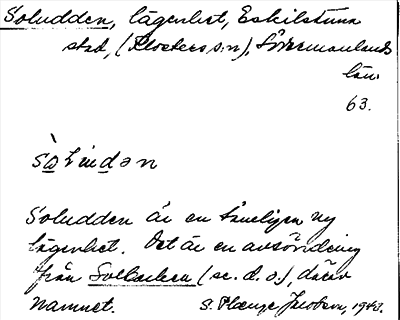 Soludden, lägenhet, Eskilstuna
stad, (Klosters s:n), Södermanlands
län.
63.
Soludden är en tämligen ny
lägenhet. Det är en avsöndring
från Solbacken (se. d. o.), därav
namnet. S. Jacobson, 1943.